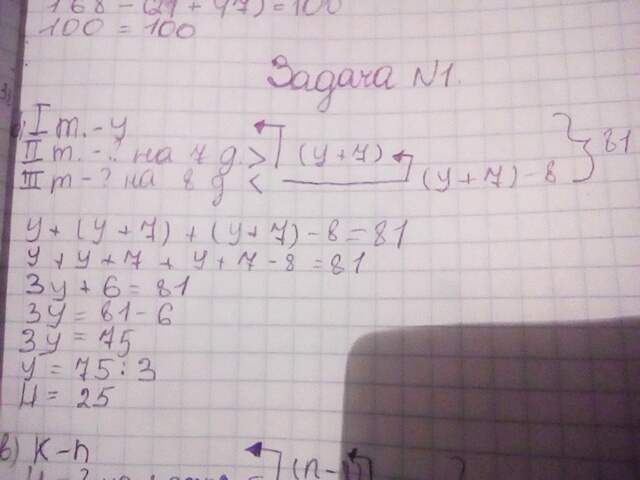 168 - (21 + 47) = 100
100 = 100
Задача N1.
I т. - у
II т. - ? на 7 д. > (у + 7)
III т - ? на 8 д < (у + 7) - 8 } 81
у + (у + 7) + (у + 7) - 8 = 81
у + у + 7 + у + 7 - 8 = 81
3у + 6 = 81
3у = 81 - 6
3у = 75
у = 75 : 3
у = 25
в) К - n